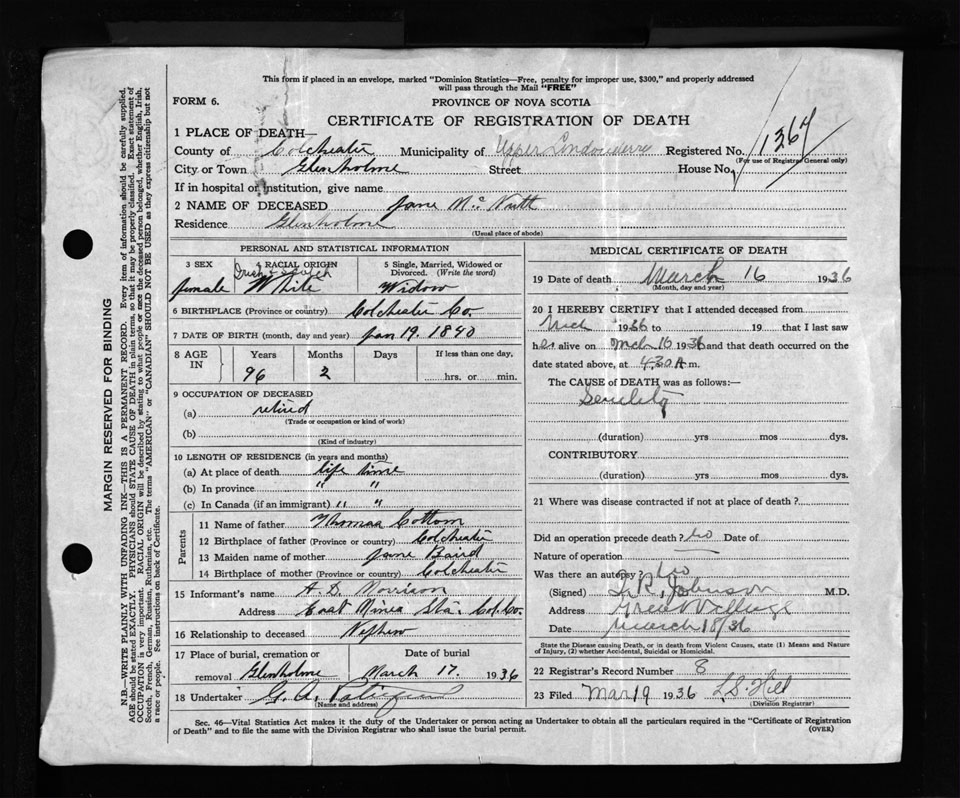 This form if placed in an envelope, marked "Dominion Statistics—Free, penalty for improper use, $300," and properly addressed
will pass through the Mail "FREE"
FORM 6.
PROVINCE OF NOVA SCOTIA
CERTIFICATE OF REGISTRATION OF DEATH
1 PLACE OF DEATH—
County of Colchester Municipality of Upper Londonderry Registered No. 1367
(For use of Registrar General only)
City or Town Glenholme Street House No.
If in hospital or institution, give name
2 NAME OF DECEASED Jane McNutt
Residence Glenholme
(Usual place of abode)
PERSONAL AND STATISTICAL INFORMATION
3 SEX 4 RACIAL ORIGIN 5 Single, Married, Widowed or Divorced. (Write the word)
female Irish & Scotch White Widow
6 BIRTHPLACE (Province or country) Colchester Co.
7 DATE OF BIRTH (month, day and year) Jan 19. 1840
8 AGE IN Years Months Days If less than one day,
96 2 hrs. or min.
9 OCCUPATION OF DECEASED
(a) retired
(Trade or occupation or kind of work)
(b)
(Kind of industry)
10 LENGTH OF RESIDENCE (in years and months)
(a) At place of death life time
(b) In province " "
(c) In Canada (if an immigrant) " "
Parents
11 Name of father Thomas Cottom
12 Birthplace of father (Province or country) Colchester
13 Maiden name of mother Jane Baird
14 Birthplace of mother (Province or country) Colchester
15 Informant's name A. D. Morrison
Address East Mines Sta. Col. Co.
16 Relationship to deceased Nephew
17 Place of burial, cremation or removal Date of burial
Glenholme March 17. 1936
18 Undertaker G. A.
(Name and address)
MEDICAL CERTIFICATE OF DEATH
19 Date of death March 16 1936
(Month, day and year)
20 I HEREBY CERTIFY that I attended deceased from
Mch 1936 to 19 that I last saw
her alive on Mch 16 1936 and that death occurred on the
date stated above, at 4.30 A m.
The CAUSE of DEATH was as follows:—
Senility
(duration) yrs mos dys.
CONTRIBUTORY
(duration) yrs mos dys.
21 Where was disease contracted if not at place of death?
Did an operation precede death? no Date of
Nature of operation
Was there an autopsy? no
(Signed) R. Johnson M.D.
Address Great Village
Date March 18/36
State the Disease causing Death, or in death from Violent Causes, state (1) Means and Nature
of Injury, (2) whether Accidental, Suicidal or Homicidal.
22 Registrar's Record Number 8
23 Filed Mar 19 1936 L. S. Hill
(Division Registrar)
Sec. 46—Vital Statistics Act makes it the duty of the Undertaker or person acting as Undertaker to obtain all the particulars required in the "Certificate of Registration
of Death" and to file the same with the Division Registrar who shall issue the burial permit.
(OVER)
MARGIN RESERVED FOR BINDING
N.B.—WRITE PLAINLY WITH UNFADING INK—THIS IS A PERMANENT RECORD. Every item of information should be carefully supplied.
AGE should be stated EXACTLY. PHYSICIANS should STATE CAUSE OF DEATH in plain terms, so that it may be properly classified. Exact statement of
OCCUPATION is very important. RACIAL ORIGIN will be described by stating to what people or race the deceased person belonged, whether English, Irish,
Scotch, French, German, Russian, Ruthenian, etc. The terms "AMERICAN" or "CANADIAN" SHOULD NOT BE USED as they express citizenship but not
a race or people. See instructions on back of Certificate.